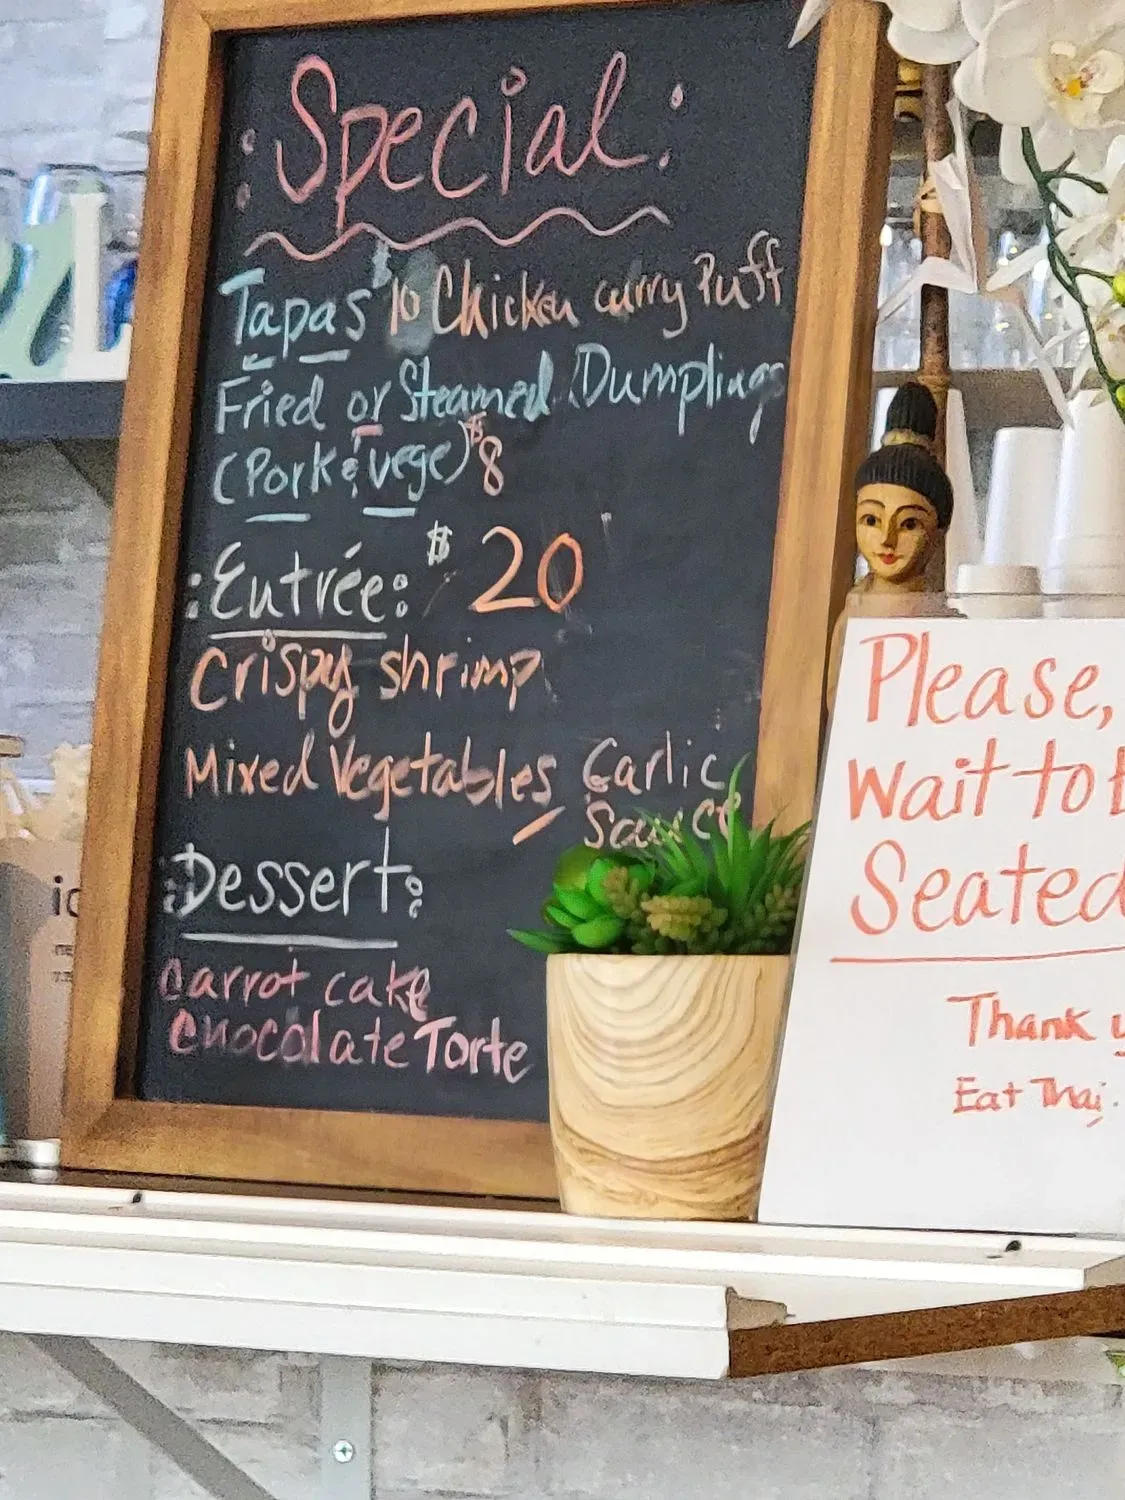 : Special :
Tapas $10 Chicken curry Puff
Fried or Steamed Dumplings
(Pork & vege) $8
: Entrée: $20
Crispy shrimp
Mixed Vegetables Garlic
Sauce
: Dessert:
Carrot cake
Chocolate Torte
Please,
Wait to
Seated
Thank
Eat Thai.